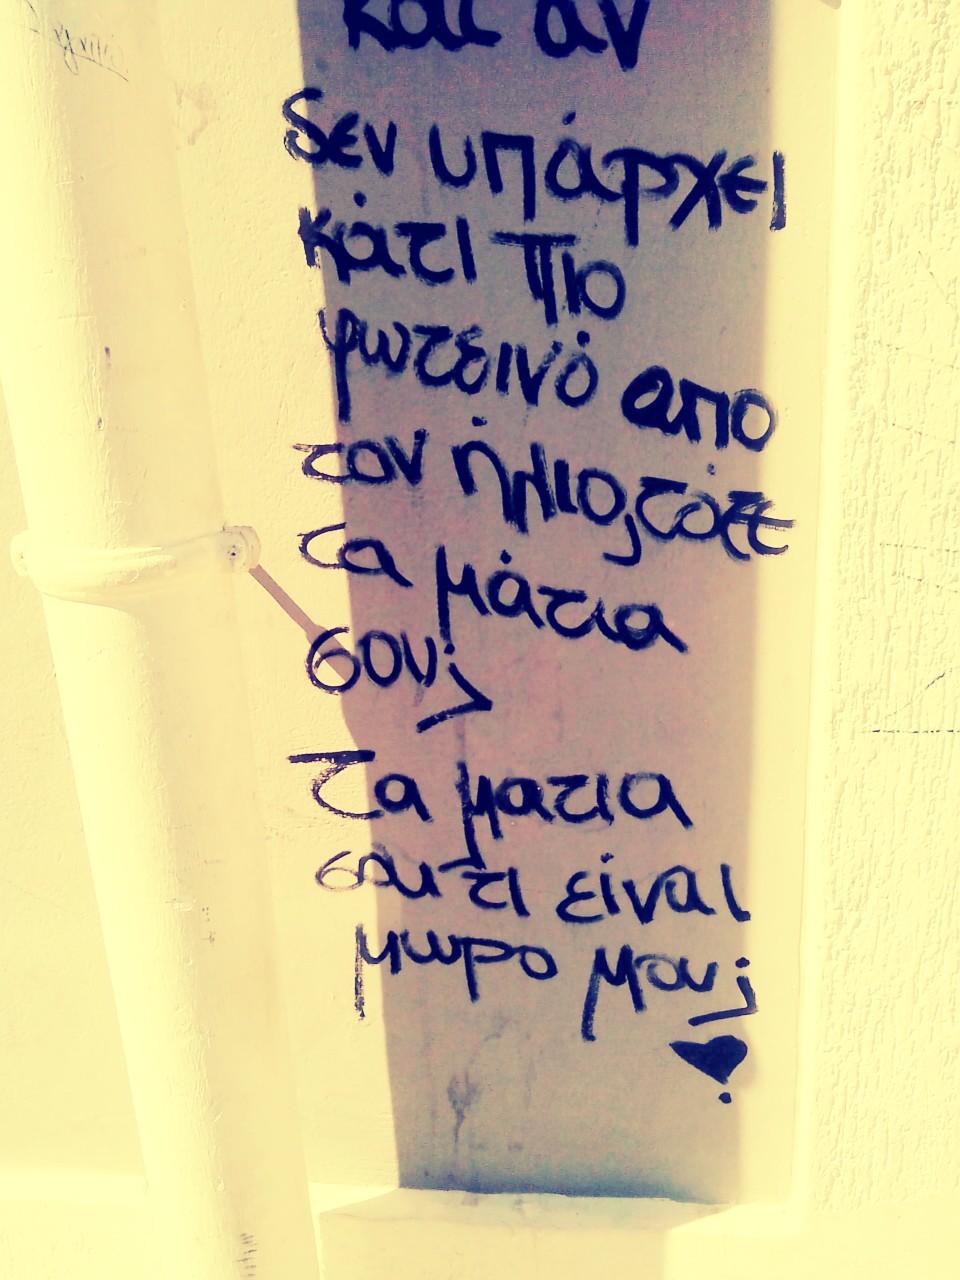 και αν
δεν υπάρχει
κάτι πιο
φωτεινό απο
τον ήλιο, τότε
τα μάτια
σου;
Τα ματια
σου τι είναι
μωρο μου;